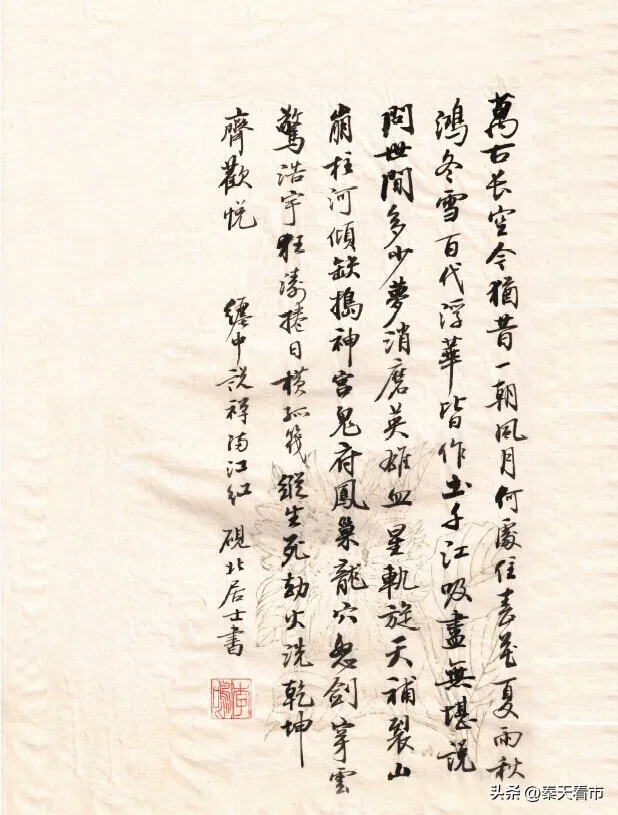 萬古长空今猶昔一朝风月何處住春花夏雨秋
鴻冬雪百代浮華皆作土千江吸盡無堪説
問世間多少夢消磨英雄血星軌旋天補裂山
崩柱河傾缺搗神宫鬼府鳳巢龍穴忽剑穿雲
驚浩宇狂濤捲日横孤筏縱生死劫火洗乾坤
齊歡悦 纏中説禅满江红 硯北居士書
头条 @秦天看市